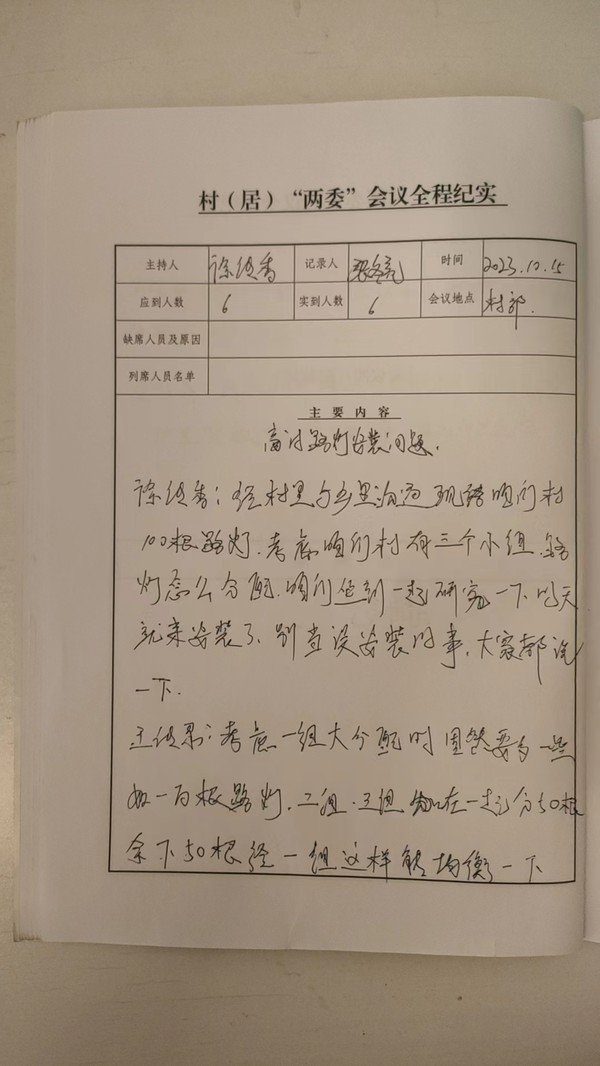 村（居）“两委”会议全程纪实
主持人 徐俊香 记录人 时间 2023.12.15
应到人数 6 实到人数 6 会议地点 村部.
缺席人员及原因
列席人员名单
主要内容
商讨路灯安装问题.
徐俊香：经村里与乡里沟通 现给咱们村
100根路灯.考虑咱们村有三个小组.路
灯怎么分配.咱们坐到一起研究一下 明天
就来安装了.别耽误安装的事.大家都说
一下.
王俊：考虑一组大分配时固然要多一些
如一百根路灯.二组.三组 在一起分50根
余下50根给一组这样能均衡一下